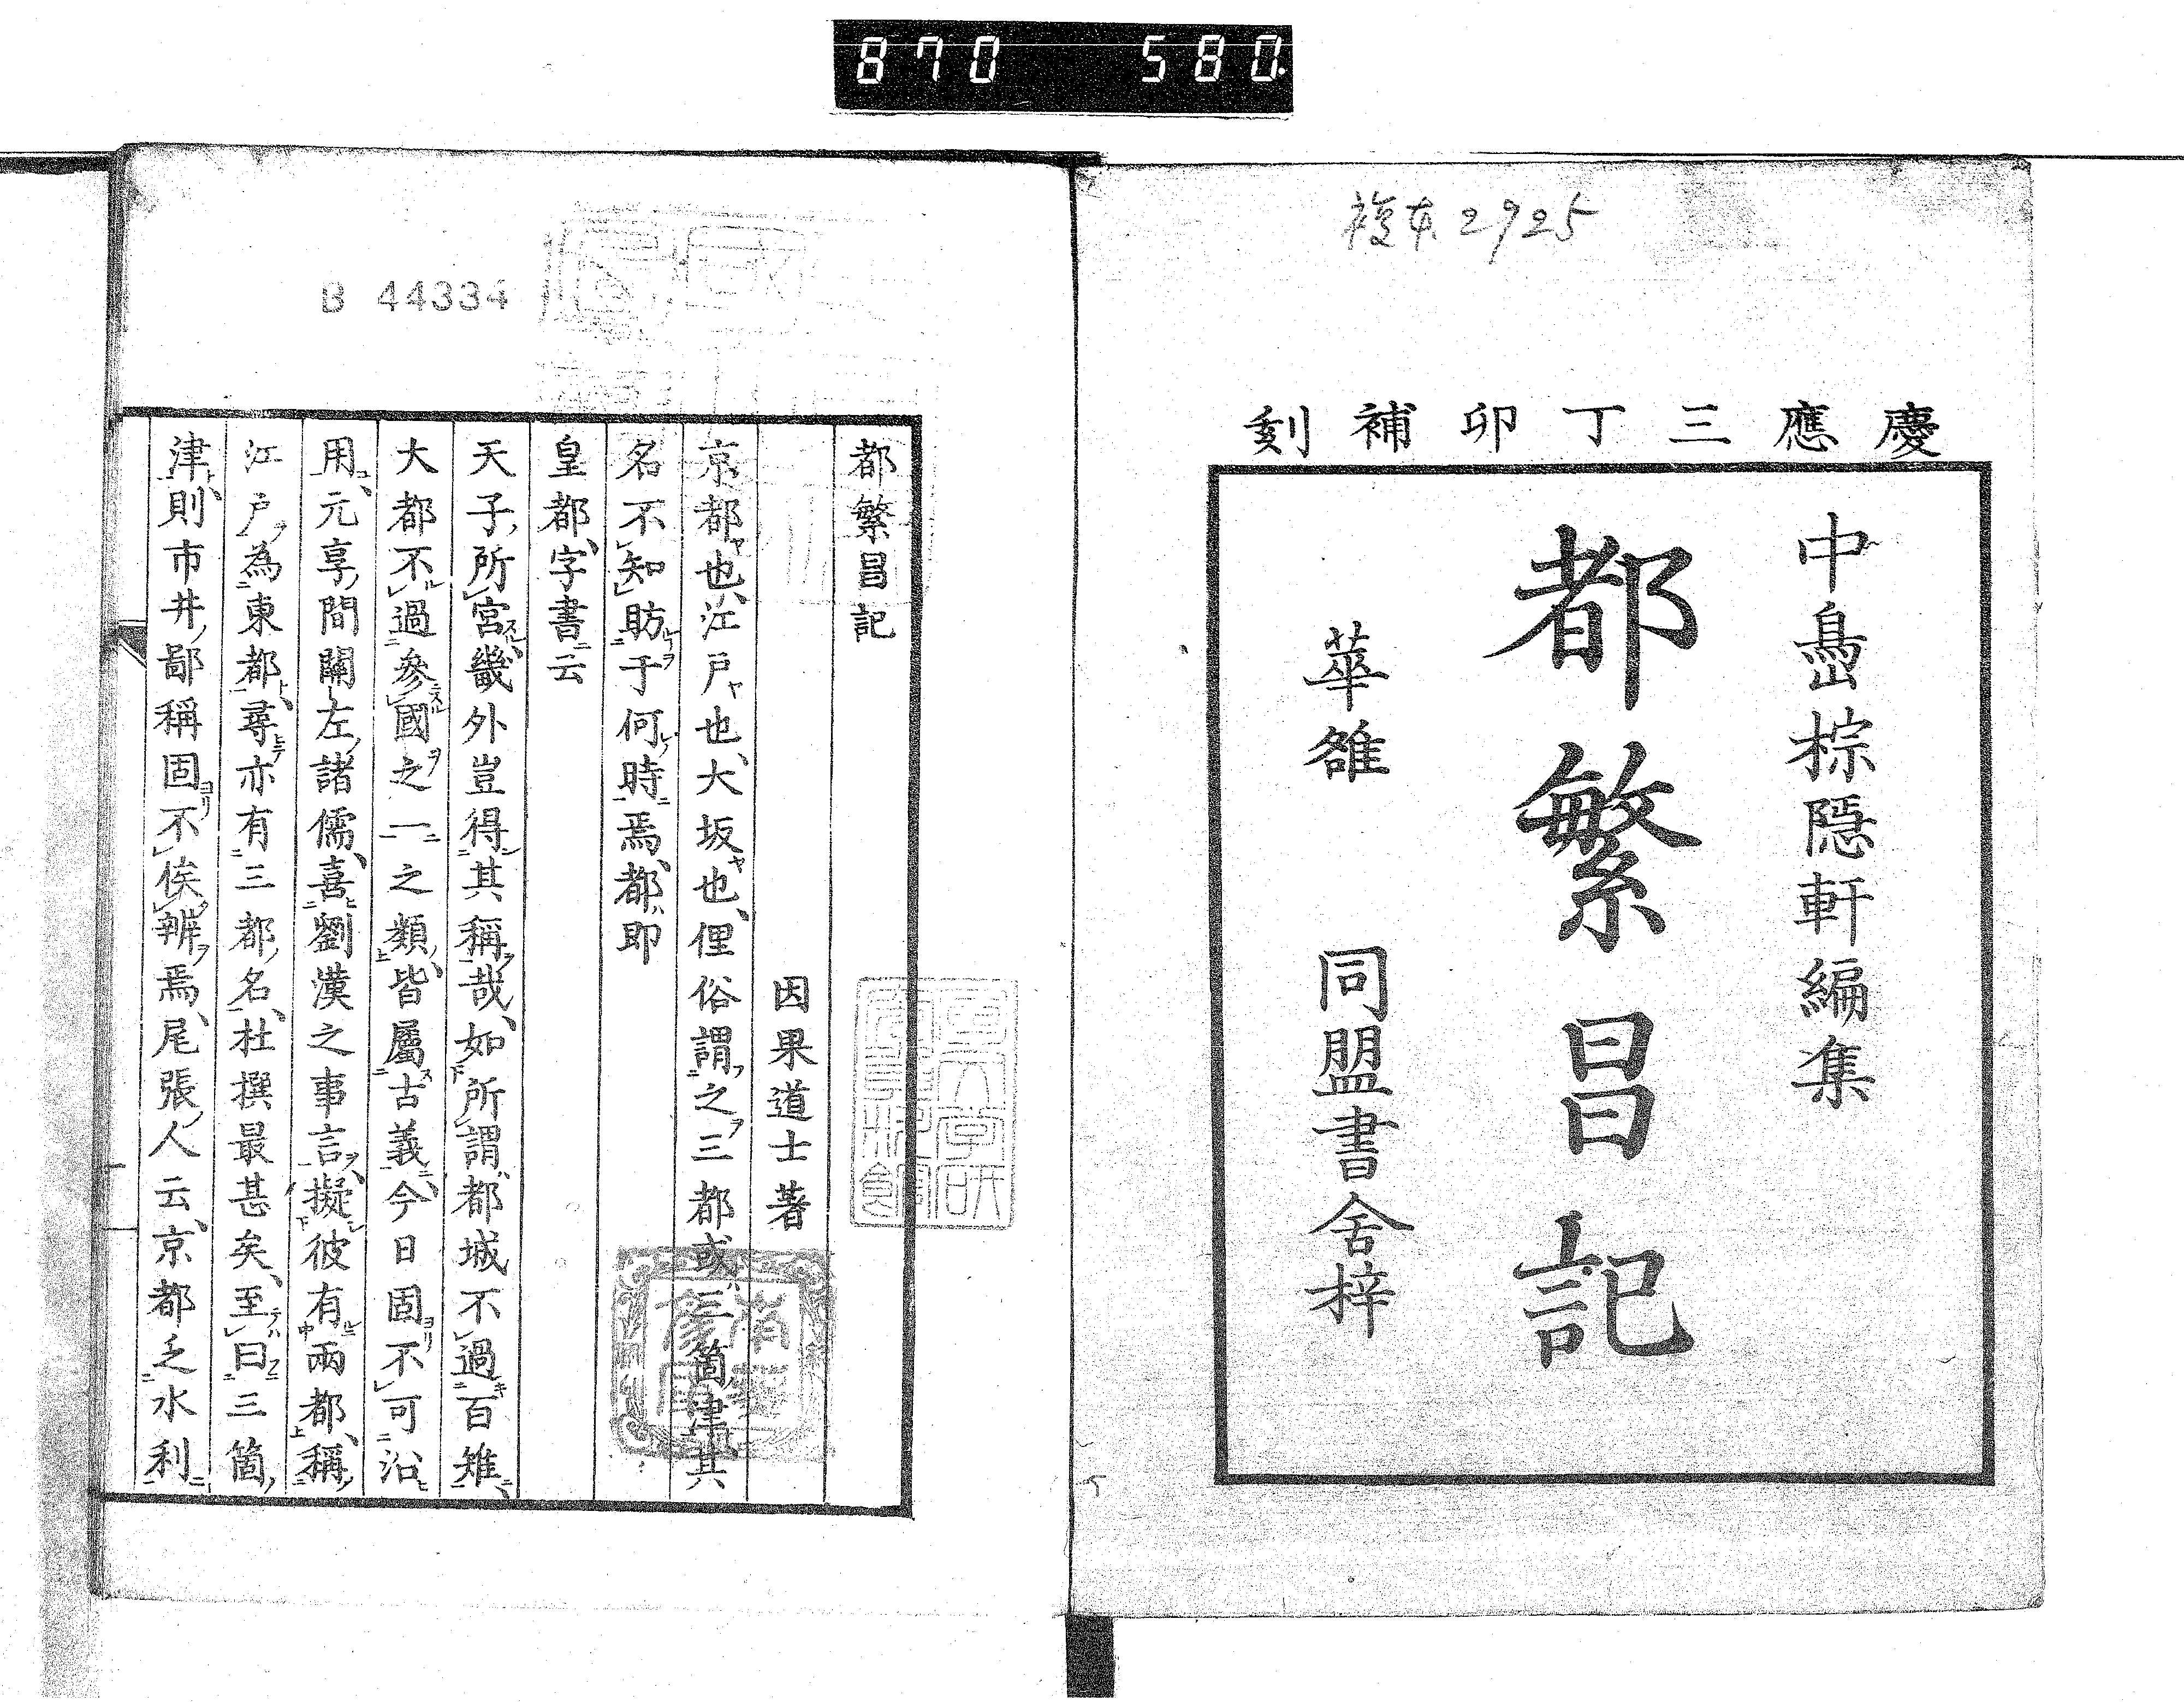 870 580.
複本 2925
慶應三丁卯補刻
中島棕隱軒編集
都繁昌記
華雒 同盟書舍梓
B 44334
都繁昌記
因果道士著
京都ヤ也、江戸ヤ也、大坂ヤ也、俚俗謂之三都或ハ三箇津、其
名不知昉于何時焉、都ハ即
皇都、字書ニ云
天子所宮、畿外豈得其稱哉、如所謂都城不過百雉、
大都不過參國之一之類、皆屬古義、今日固不可沿
用、元享間關左諸儒、喜劉漢之事言、擬彼有兩都稱、
江戸為東都、尋亦有三都名、杜撰最甚矣、至曰三箇
津、則市井鄙稱固不俟辨焉、尾張人云、京都乏水利